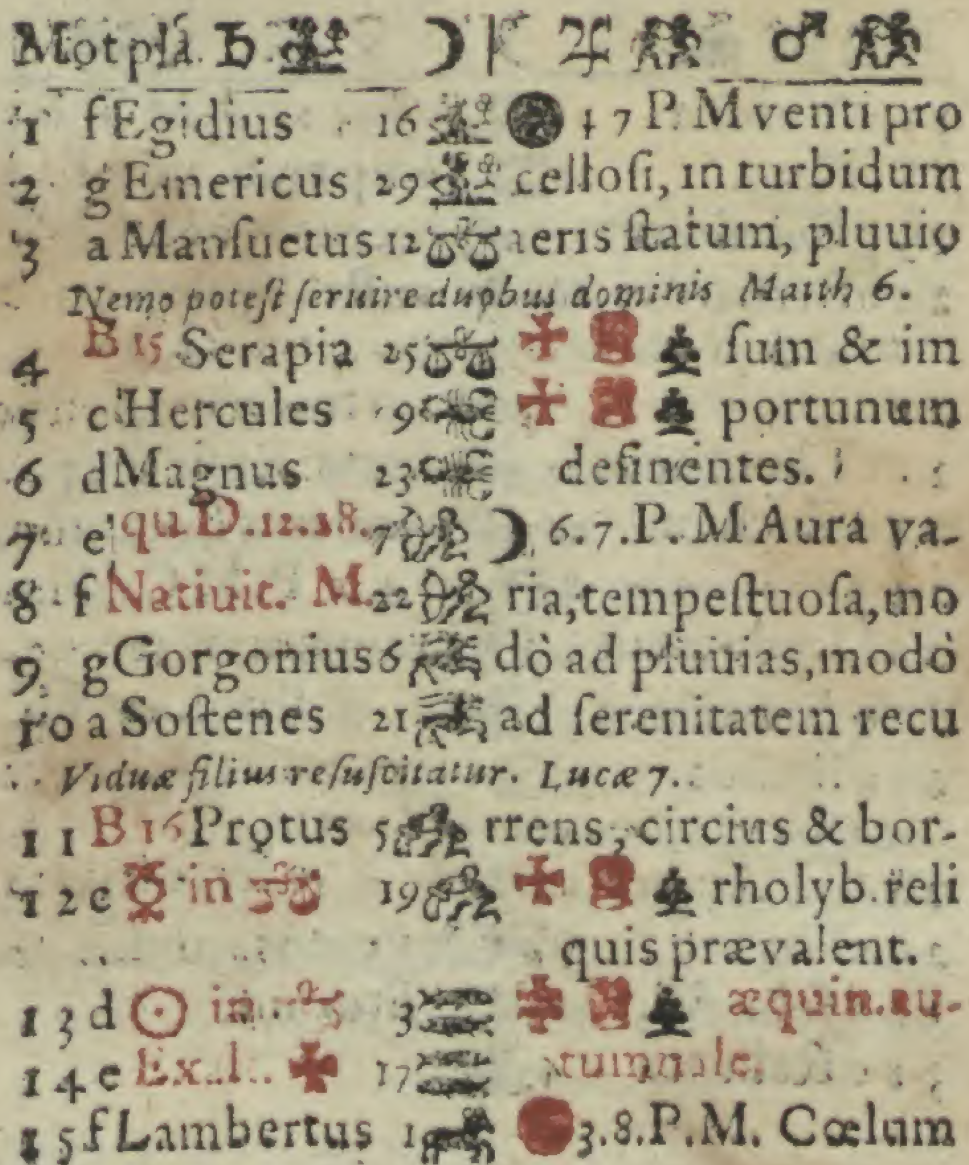 Mot plá. ♄ ☽ ♃ ♂
1 f Egidius 16 ● 47 P. M venti pro
2 g Emericus 29 cellosi, in turbidum
3 a Manſuetus 12 aeris ſtatum, pluuio
Nemo poteſt ſeruire duobus dominis Matth 6.
4 B 15 Serapia 25 ✠ ſum & im
5 c Hercules 9 ✠ portunum
6 d Magnus 23 deſinentes.
7 e qu D. 12. 18. 7 ☽ 6. 7. P. M Aura va-
8 f Natiuit. M. 22 ria, tempeſtuoſa, mo
9 g Gorgonius 6 dò ad pluuias, modò
10 a Soſtenes 21 ad ſerenitatem recu
Viduæ filius reſuſcitatur. Lucæ 7.
11 B 16 Protus 5 rrens, circius & bor-
12 c ☿ in ♎ 19 ✠ rholyb. reli
quis prævalent.
13 d ☉ in ♎ 3 ✠ æquin. au-
14 e Ex. ✠ 17 tumnale.
15 f Lambertus 1 3. 8. P. M. Cœlum